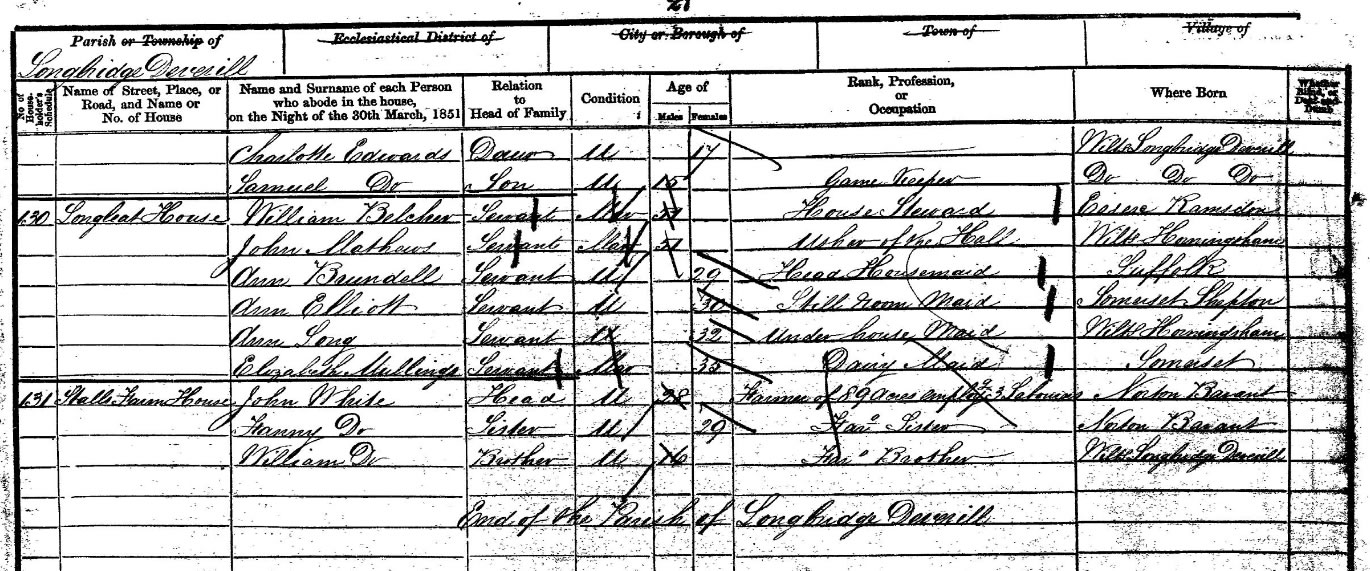 21
Parish or Township of
Ecclesiastical District of
City or Borough of
Town of
Village of
Longbridge Deverill
No. of House-holder's Schedule
Name of Street, Place, or Road, and Name or No. of House
Name and Surname of each Person who abode in the house, on the Night of the 30th March, 1851
Relation to Head of Family
Condition
Age of
Males
Females
Rank, Profession, or Occupation
Where Born
Whether Blind, or Deaf-and-Dumb
Charlotte Edwards Daur U 17 Wilts Longbridge Deverill
Samuel Do Son U 15 Game Keeper Do Do Do
130 Longleat House William Belcher Servant Mar House Steward Essex Ramsdon
John Mathews Servant Mar 51 Usher of the Hall Wilts Horningsham
Ann Brundell Servant U 29 Head Housemaid Suffolk
Ann Elliott Servant U 30 Still room Maid Somerset Shepton
Ann Long Servant U 32 Under house Maid Wilts Horningsham
Elizabeth Mullings Servant Mar 35 Dairy Maid Somerset
131 Stalls Farm House John White Head U 38 Farmer of 189 acres employg 3 Labourers Norton Bavant
Fanny Do Sister U 29 Farrs Sister Norton Bavant
William Do Brother U 16 Farrs Brother Wilts Longbridge Deverill
End of the Parish of Longbridge Deverill